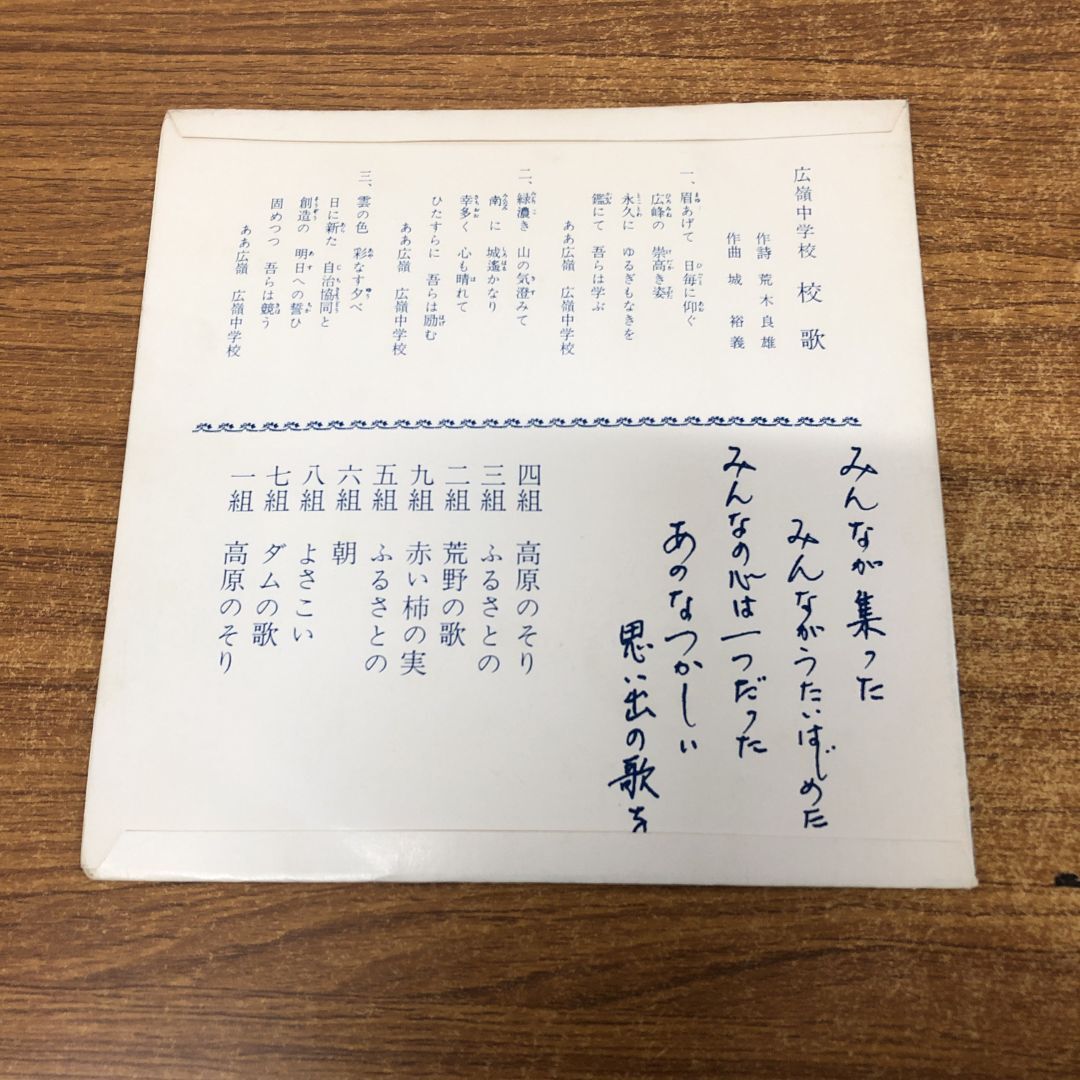 広嶺中学校 校歌
作詩 荒木良雄
作曲 城 裕義
一、眉あげて 日毎に仰ぐ
広峰の 崇高き姿
永久に ゆるぎもなきを
鑑にて 吾らは学ぶ
ああ広嶺 広嶺中学校
二、緑濃き 山の気澄みて
南に 城遙かなり
幸多く 心も晴れて
ひたすらに 吾らは励む
ああ広嶺 広嶺中学校
三、雲の色 彩なす夕べ
日に新た 自治協同と
創造の 明日への誓ひ
固めつつ 吾らは競う
ああ広嶺 広嶺中学校
みんなが集った
みんながうたいはじめた
みんなの心は一つだった
あのなつかしい
思い出の歌を
四組 高原のそり
三組 ふるさとの
二組 荒野の歌
九組 赤い柿の実
五組 ふるさとの
六組 朝
八組 よさこい
七組 ダムの歌
一組 高原のそり